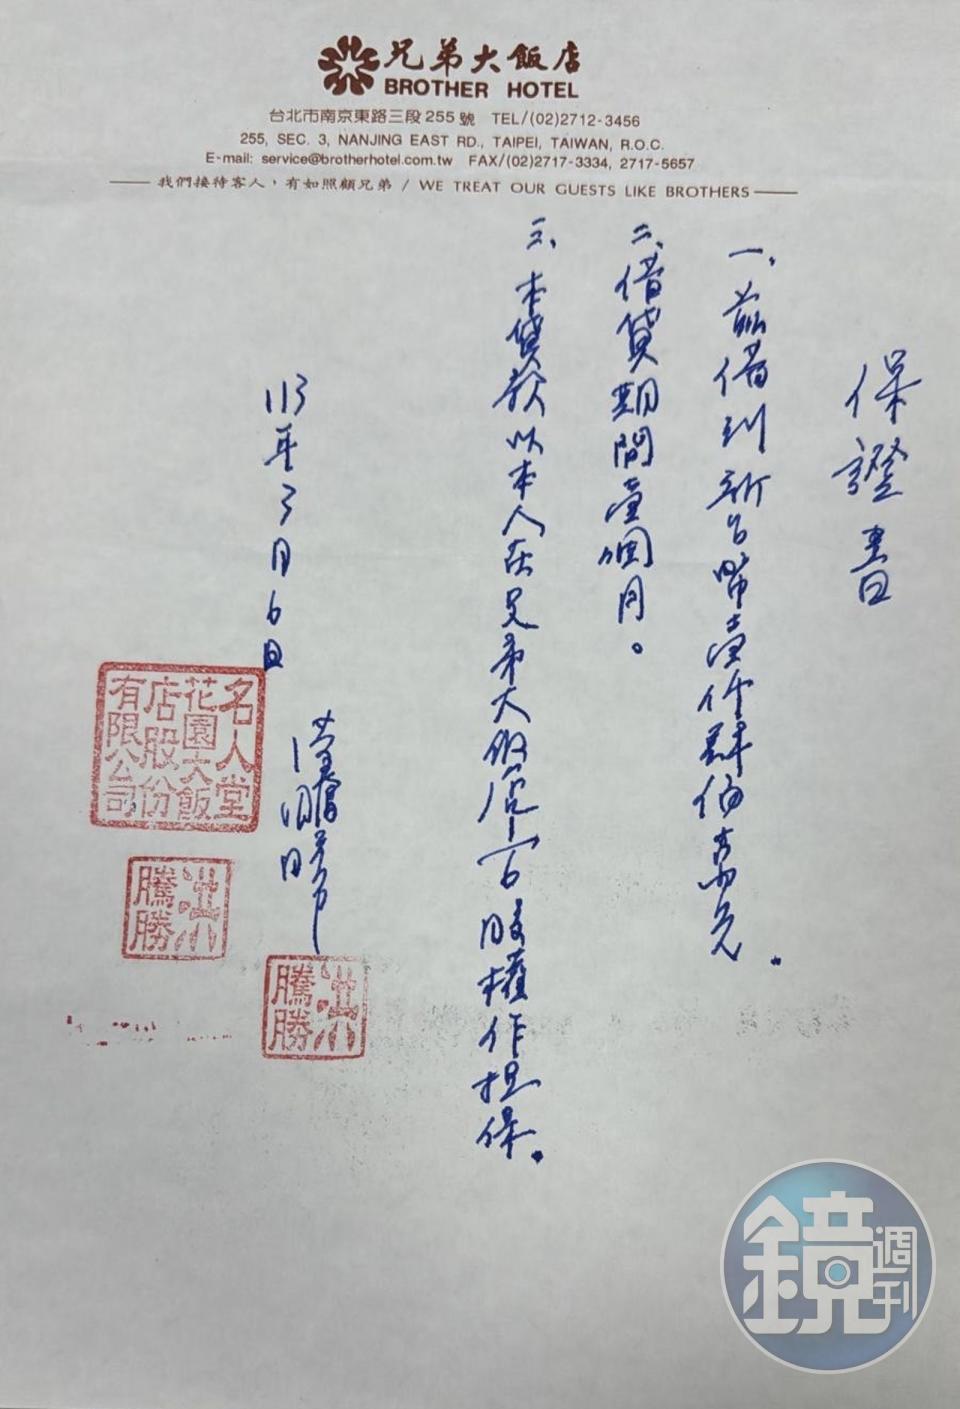 兄弟大飯店
BROTHER HOTEL
台北市南京東路三段255號 TEL/(02)2712-3456
255, SEC. 3, NANJING EAST RD., TAIPEI, TAIWAN, R.O.C.
E-mail: service@brotherhotel.com.tw FAX/(02)2717-3334, 2717-5657
我們接待客人，有如照顧兄弟 / WE TREAT OUR GUESTS LIKE BROTHERS
保證書
一、茲借到新台幣壹仟肆佰萬元.
二、借貸期間壹個月。
三、本貸款以本人在兄弟大飯店股權作担保.
洪騰勝
113年3月6日
名人堂
花園大飯
店股份
有限公司
洪
騰勝
洪
騰勝
鏡週刊